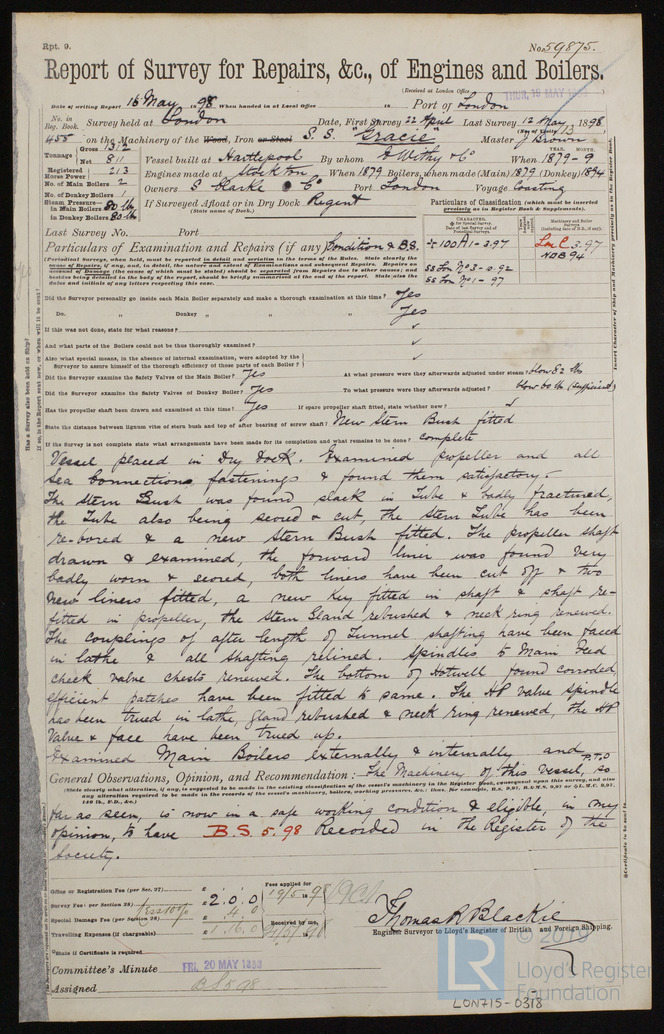 Rpt. 9.
No. 59875.
Report of Survey for Repairs, &c., of Engines and Boilers.
(Received at London Office THUR. 19 MAY 1898)
Date of writing Report 16 May 1898 When handed in at Local Office 18 Port of London
No. in Reg. Book. Survey held at London Date, First Survey 22 April Last Survey 12 May 1898
455 on the Machinery of the Wood, Iron or Steel S. S. "Gracie" Master J Brown
Tonnage Gross 1312
Net 811
Vessel built at Hartlepool By whom E Withy & Co When 1879-9
Registered Horse Power 213
Engines made at Stockton When 1879 Boilers, when made (Main) 1879 (Donkey) 1894
No. of Main Boilers 2
No. of Donkey Boilers 1
Owners S Clarke & Co Port London Voyage Coasting
Steam Pressure in Main Boilers 80 lb
in Donkey Boilers 80 lb
If Surveyed Afloat or in Dry Dock Regent
(State name of Dock.)
Particulars of Classification (which must be inserted precisely as in Register Book & Supplements).
Last Survey No. Port
Particulars of Examination and Repairs (if any) Condition & B.S.
+ 100A1-3.97
SS Lon No 3-2.92
SS Lon No 1-97
LMC 3.97
NDB 94
(Periodical Surveys, when held, must be reported in detail and seriatim in the terms of the Rules. State clearly the cause of Repairs, if any, and, in detail, the nature and extent of Examinations and subsequent Repairs. Repairs on account of Damage (the cause of which must be stated) should be separated from Repairs due to other causes; and besides being detailed in the body of the report, should be briefly summarised at the end of the report. State also the dates and initials of any letters respecting this case.
Did the Surveyor personally go inside each Main Boiler separately and make a thorough examination at this time? Yes
Do. " Donkey " " " Yes
If this was not done, state for what reasons?
And what parts of the Boilers could not be thus thoroughly examined?
Also what special means, in the absence of internal examination, were adopted by the Surveyor to assure himself of the thorough efficiency of those parts of each Boiler?
Did the Surveyor examine the Safety Valves of the Main Boiler? Yes At what pressure were they afterwards adjusted under steam? blow 82 lbs
Did the Surveyor examine the Safety Valves of Donkey Boiler? Yes To what pressure were they afterwards adjusted? blow 60 lb (sufficient)
Has the propeller shaft been drawn and examined at this time? Yes If spare propeller shaft fitted, state whether new?
State the distance between lignum vitæ of stern bush and top of after bearing of screw shaft? New Stern Bush fitted
If the Survey is not complete state what arrangements have been made for its completion and what remains to be done? Complete
Vessel placed in Dry Dock. Examined propeller and all
Sea Connections, fastenings & found them satisfactory.
The Stern Bush was found slack in Tube & badly fractured,
the Tube also being scored & cut, the Stern Tube has been
re-bored & a new Stern Bush fitted. The propeller shaft
drawn & examined, the forward liner was found very
badly worn & scored, both liners have been cut off & two
new liners fitted, a new key fitted in shaft & shaft re-
fitted in propeller, the Stern Gland rebushed & neck ring renewed.
The couplings of after length of Tunnel shafting have been faced
in lathe & all shafting relined. Spindles to Main Feed
check valve chests renewed. The bottom of Hotwell found corroded,
efficient patches have been fitted to same. The HP valve Spindle
has been trued in lathe, gland rebushed & neck ring renewed, the HP
Valve & face have been trued up.
Examined Main Boilers externally & internally and P.T.O
General Observations, Opinion, and Recommendation: The Machinery of this Vessel, so
far as seen, is now in a safe working condition & eligible, in my
opinion, to have B.S. 5.98 Recorded in the Register of the
Society.
Office or Registration Fee (per Sec. 27)
Survey Fee (per Section 28) £ 2. 0. 0
Special Damage Fee (per Section 28)
Travelling Expenses (if chargeable) £ 1.16.0
Fees applied for 19/5/1898
Received by me,
Thomas R Blackie
Engineer Surveyor to Lloyd's Register of British and Foreign Shipping.
State if Certificate is required
Committee's Minute FRI. 20 MAY 1898
Assigned BS 5.98
LR © 2019
Lloyd's Register
Foundation
LON715-0318